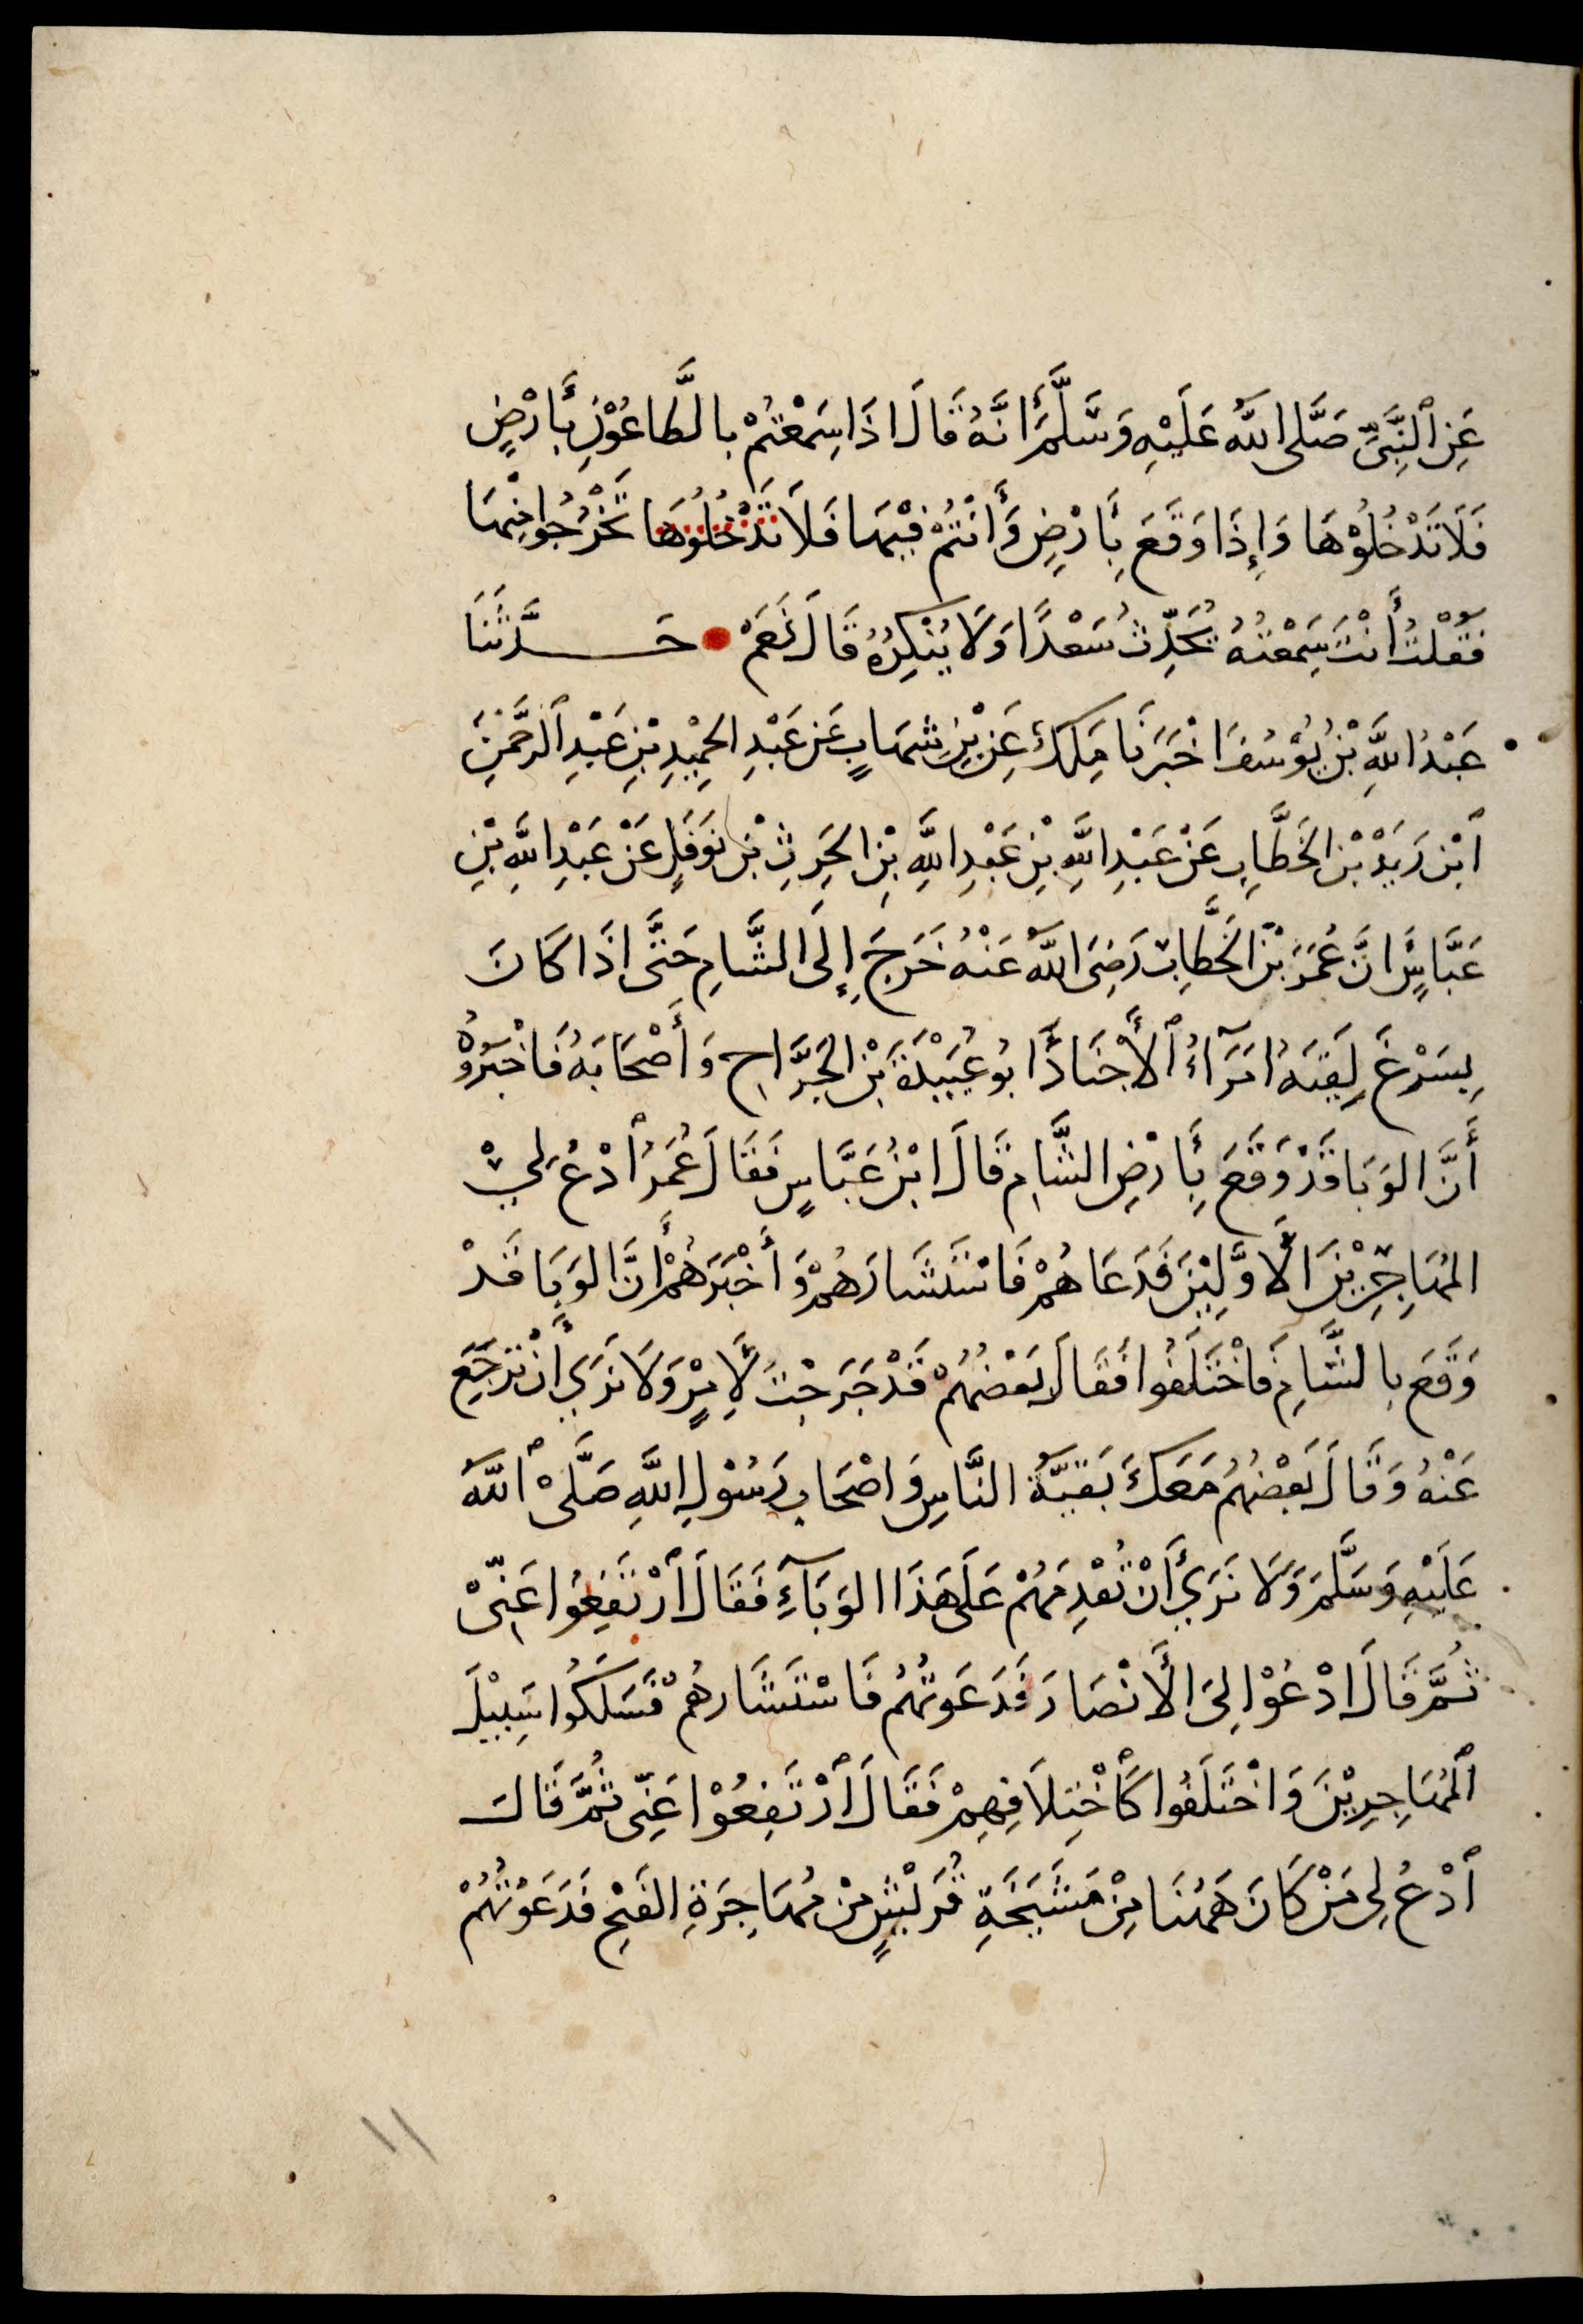 عَنِ ٱلنَّبِيِّ صَلَّى اللَّهُ عَلَيْهِ وَسَلَّمَ أَنَّهُ قَالَ اذَا سَمِعْتُمْ بالطَّاعُوْنِ بِأَرْضٍ
فَلَا تَدْخُلُوْهَا وَإِذَا وَقَعَ بِأَرْضٍ وَأَنْتُمْ فِيْهَا فَلَا تَدْخُلُوْهَا تَخْرُجُوا مِنْهَا
فَقُلْتُ أَنْتَ سَمِعْتَهُ يُحَدِّثُ سَعْدًا وَلَا يُنْكِرُهُ قَالَ نَعَمْ حَدَّثَنَا
عَبْدُ اللَّهِ بْنُ يُوْسُفَ اخْبَرَنَا مَلِكٌ عَنِ بْنِ شِهَابٍ عَن عَبْدِ الحَمِيْدِ بْنِ عَبْدِ ٱلرَّحْمَنِ
ٱبْن زَيَدْ بْن الخَطَّابِ عَنْ عَبْدِ اللَّهِ بْنِ عَبْدِ اللَّهِ بْنِ الحَرِثِ بْن نَوَفَلٍ عَنْ عَبْدِ اللَّهِ بْنِ
عَبَّاسٍ أَنَّ عُمَرَ بْنَ الخَطَّابِ رَضِيَ اللَّهُ عَنْهُ خَرَجَ إِلَى الشَّامِ حَتَّى اذَا كَانَ
بِسَرْغَ لَقِيَهُ امَرَآءُ ٱلأَجْنَادِ أَبُو عُبَيْدَةَ بْنُ الجَرَّاحِ وَأَصْحَابَهُ فَاخْبَرُوْهُ
أَنَّ الوَبَا قَدْ وَقَعَ بِأَرْضِ الشَّامِ قَالَ ابْنُ عَبَّاسٍ فَقَالَ عُمَرُ ٱدْعُ لِيْ
المُهَاجِرِيْنَ الأَوَّلِيْنَ فَدَعَاهُمْ فَاسْتَشَارَهُمْ وَأَخْبَرَهُمْ أَنَّ الوَبَا قَدْ
وَقَعَ بالشَّامِ فَاخْتَلَفُوا فَقَالَ بَعْضُهُمْ قَدْ خَرَجْتَ لِأَمْرٍ وَلَا نَرَي أَنْ تَرْجَعَ
عَنْهُ وَقَالَ بَعْضُهُمْ مَعَكَ بَقيَّةُ النَّاسِ وَاصْحَابِ رَسُوْلِ اللَّهِ صَلَّى ٱللَّهُ
عَلَيْهِ وَسَلَّمَ وَلَا نَرَي أَنْ تُقْدِمَهُمْ عَلَى هَذَا الوَبَآءِ فَقَالَ ٱرْتَفِعُوا عَنِّيْ
ثُمَّ قَالَ ادْعُوْا لِيَ الأَنْصَارَ فَدَعَوتُهُمْ فَاسْتَشَارهُمْ فَسَلَكُوا سَبِيْلَ
ٱلمُهَاجِرِيْنَ وَاخْتَلَفُوا كَأَخْتِلَافِهِمْ فَقَالَ ٱرْتَفِعُوْا عَنِّى ثُمَّ قَالَ
ٱدْعُ لِى مَنْ كَانَ هَهُنَا مِنْ مَشَيَخَةِ قُرَيْشٍ مِنْ مُهَاجِرَةِ الفَتْحِ فَدَعَوْتُهُمْ
١١